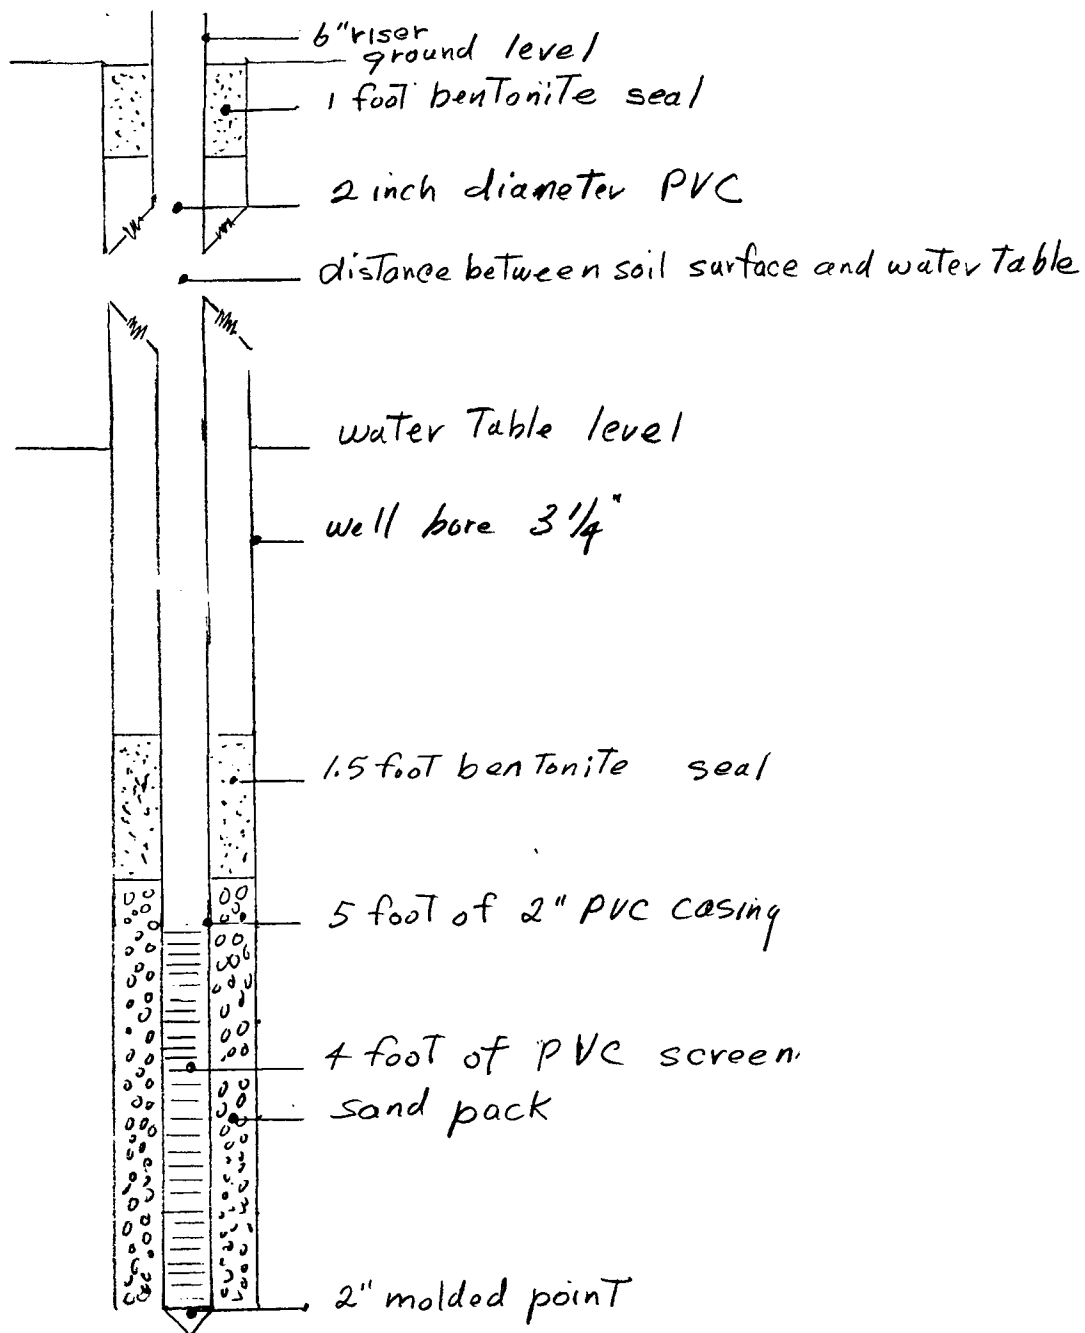 6" riser
ground level
1 foot bentonite seal
2 inch diameter PVC
distance between soil surface and water table
water Table level
well bore 3 1/4"
1.5 foot bentonite seal
5 foot of 2" PVC casing
4 foot of PVC screen
sand pack
2" molded point